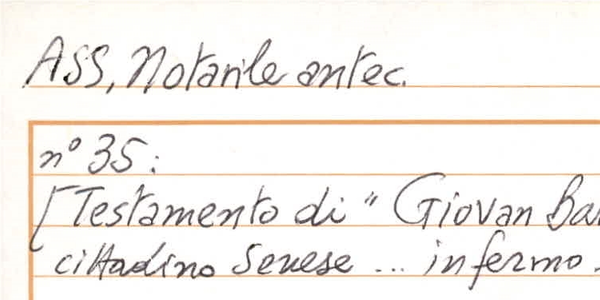 ASS, Notarile antec.
n° 35:
[Testamento di "Giovan Ba
cittadino Senese ... infermo